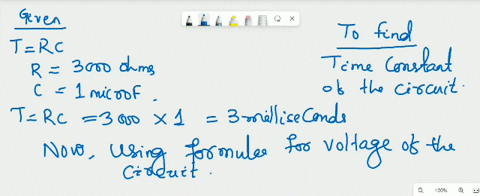 Given
To find
T=RC
R = 3000 ohms
Time Constant
C = 1 microF.
of the circuit.
T=RC = 3000 × 1 = 3 milliseconds
Now, Using formulae for voltage of the
circuit.
100%